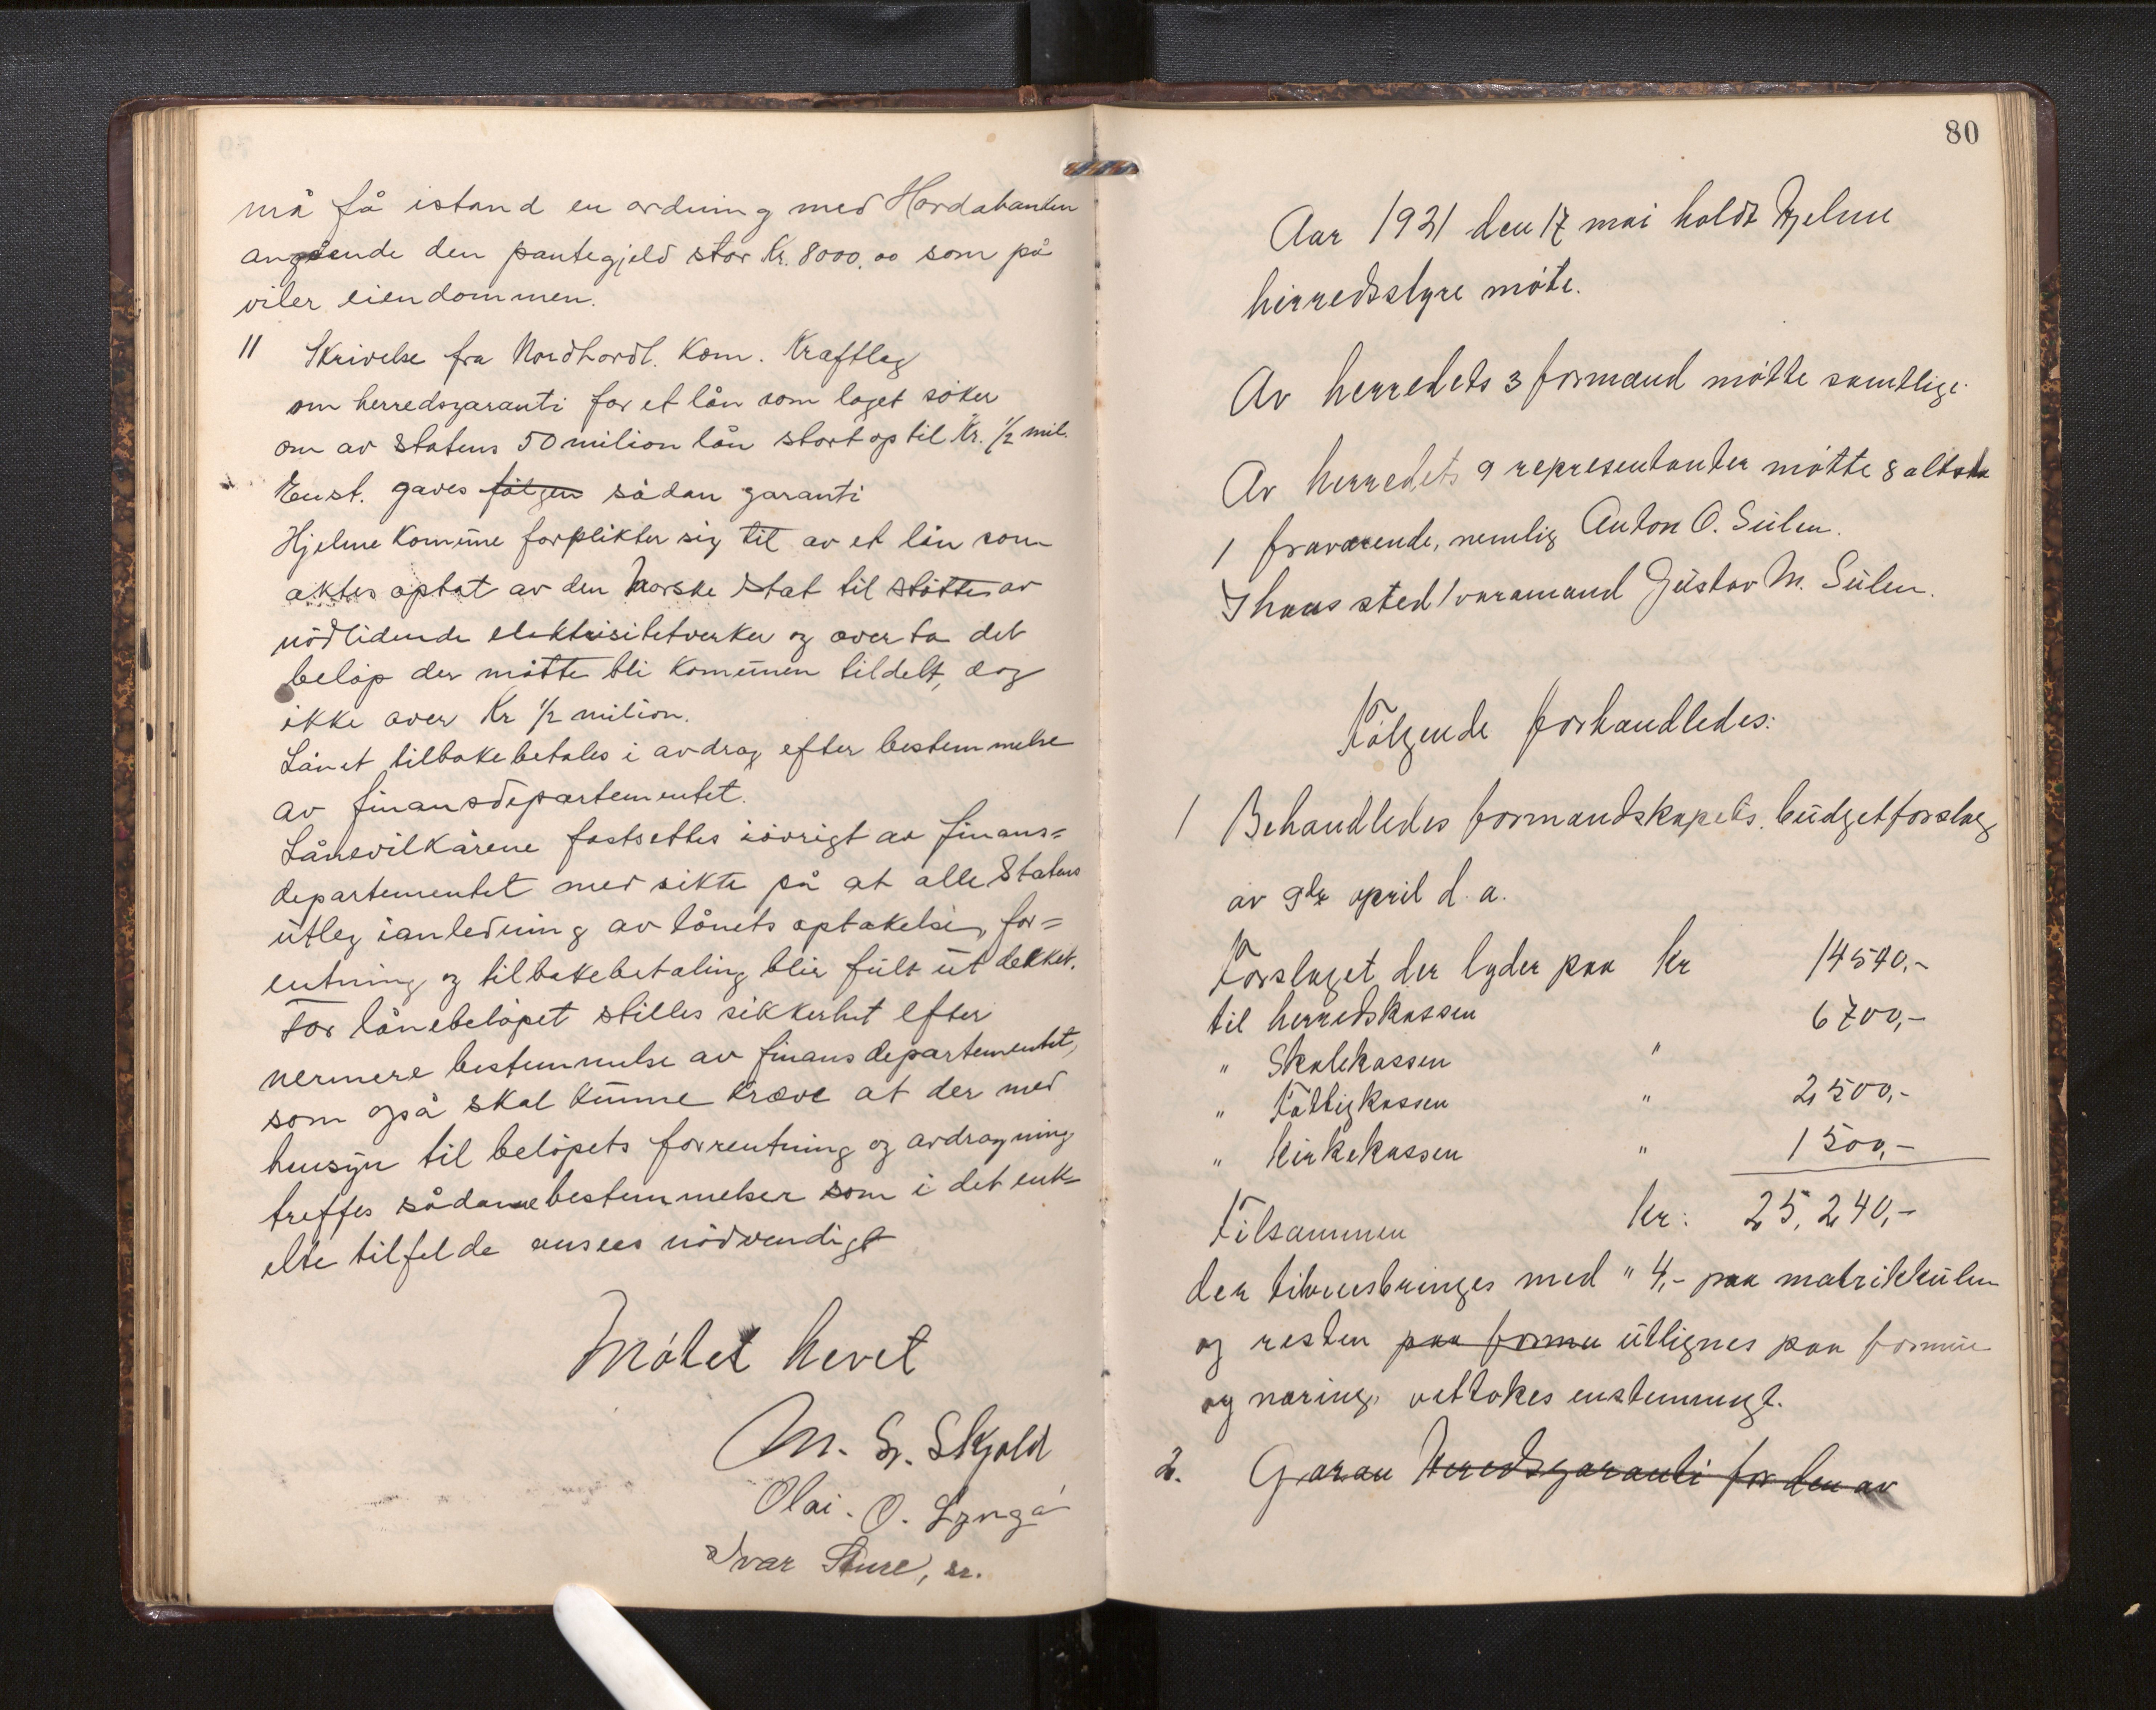 må få istand en ordning med Hordabanken
angående den pantegjeld stor Kr. 8000.00 som på
viler eiendommen.
11 Skrivelse fra Nordhordl. Kom. Kraftlag
om herredsgaranti for et lån som laget søker
om av statens 50 milion lån stort op til Kr. 1/2 mil.
Enst. gaves følgen sådan garanti
Hjelme Komune forplikter sig til av et lån som
aktes optat av den Norske stat til støtte av
nødlidende elektrisitetverker og overta det
beløp der måtte bli Komunen tildelt, dog
ikke over Kr 1/2 milion.
Lånet tilbakebetales i avdrag efter bestemmelse
av finansdepartementet.
Lånevilkårene fastsettes iøvrigt av finans=
departementet med sikte på at alle Statens
utleg ianledning av lånets optakelse, for=
entning og tilbakebetaling blir fult ut dekket.
For lånebeløpet stilles sikkerhet efter
nermere bestemmelse av finansdepartementet,
som også skal kunne kræve at der med
hensyn til beløpets forrentning og avdragning
treffes sådanne bestemmelser som i det enk=
elte tilfelde ansees nødvendigt
Møtet hevet
M. S. Skjold
Olai. O. Lyngå
Ivar Sture, sr.
80
Aar 1931 den 17 mai holdt Hjelme
herredsstyre møte.
Av herredets 3 formænd møtte samtlige.
Av herredets 9 representanter møtte 8 altsaa
1 fraværende, nemlig Anton O. Sulen.
I hans sted 1 varamand Gustav M. Sulen.
Følgende forhandledes:
1 Behandledes formandskapets budgetforslag
av 9de april d. a.
Forslaget der lyder paa kr 14540,-
til herredskassen 6700,-
" Skolekassen "
" Fattigkassen " 2500,-
" Kirkekassen " 1500,-
Tilsammen kr: 25,240,-
der tilveiebringes med " 4,- paa matrikkulen
og resten paa formu utlignes paa formue
og næring, vettokes enstemmigt.
2. Garan Heredsgaranti for den av